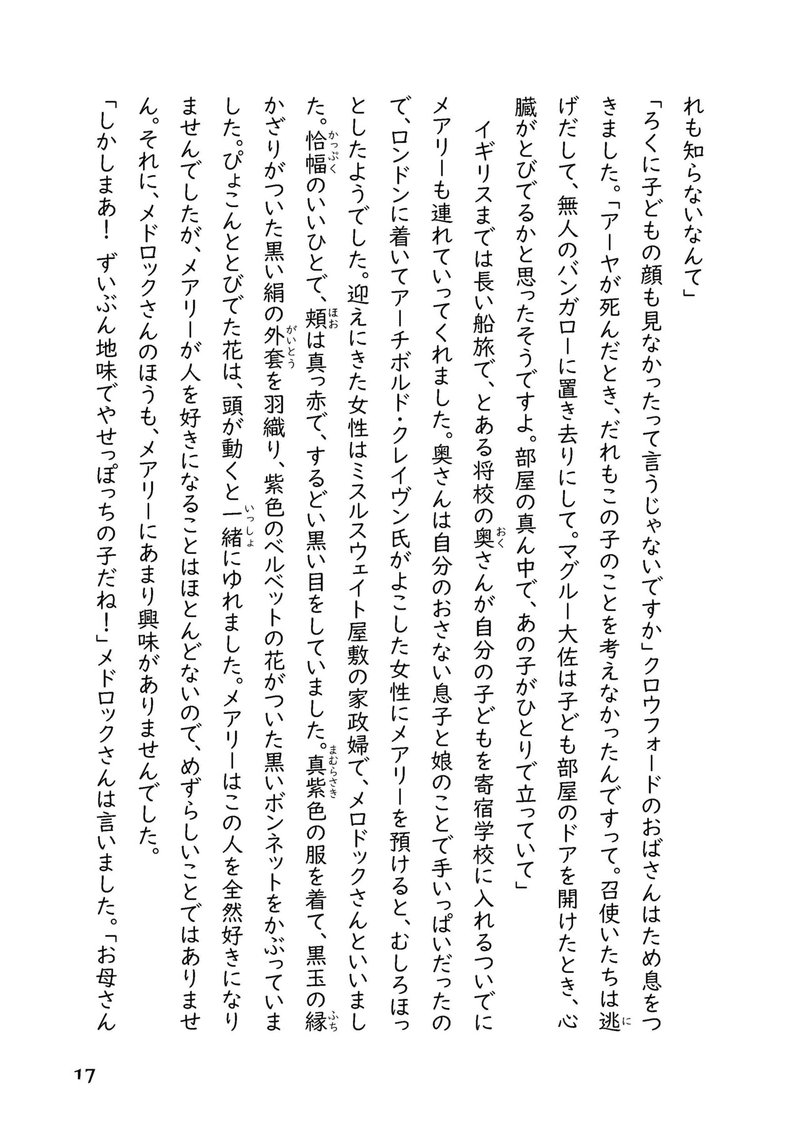 れも知らないなんて」
「ろくに子どもの顔も見なかったって言うじゃないですか」クロウフォードのおばさんはため息をつ
きました。「アーヤが死んだとき、だれもこの子のことを考えなかったんですって。召使いたちは逃
げだして、無人のバンガローに置き去りにして。マグルー大佐は子ども部屋のドアを開けたとき、心
臓がとびでるかと思ったそうですよ。部屋の真ん中で、あの子がひとりで立っていて」
イギリスまでは長い船旅で、とある将校の奥さんが自分の子どもを寄宿学校に入れるついでに
メアリーも連れていってくれました。奥さんは自分のおさない息子と娘のことで手いっぱいだったの
で、ロンドンに着いてアーチボルド・クレイヴン氏がよこした女性にメアリーを預けると、むしろほっ
としたようでした。迎えにきた女性はミスルスウェイト屋敷の家政婦で、メロドックさんといいまし
た。恰幅のいいひとで、頬は真っ赤で、するどい黒い目をしていました。真紫色の服を着て、黒玉の縁
かざりがついた黒い絹の外套を羽織り、紫色のベルベットの花がついた黒いボンネットをかぶっていま
した。ぴょこんととびでた花は、頭が動くと一緒にゆれました。メアリーはこの人を全然好きになり
ませんでしたが、メアリーが人を好きになることはほとんどないので、めずらしいことではありませ
ん。それに、メドロックさんのほうも、メアリーにあまり興味がありませんでした。
「しかしまあ! ずいぶん地味でやせっぽっちの子だね!」メドロックさんは言いました。「お母さん
17